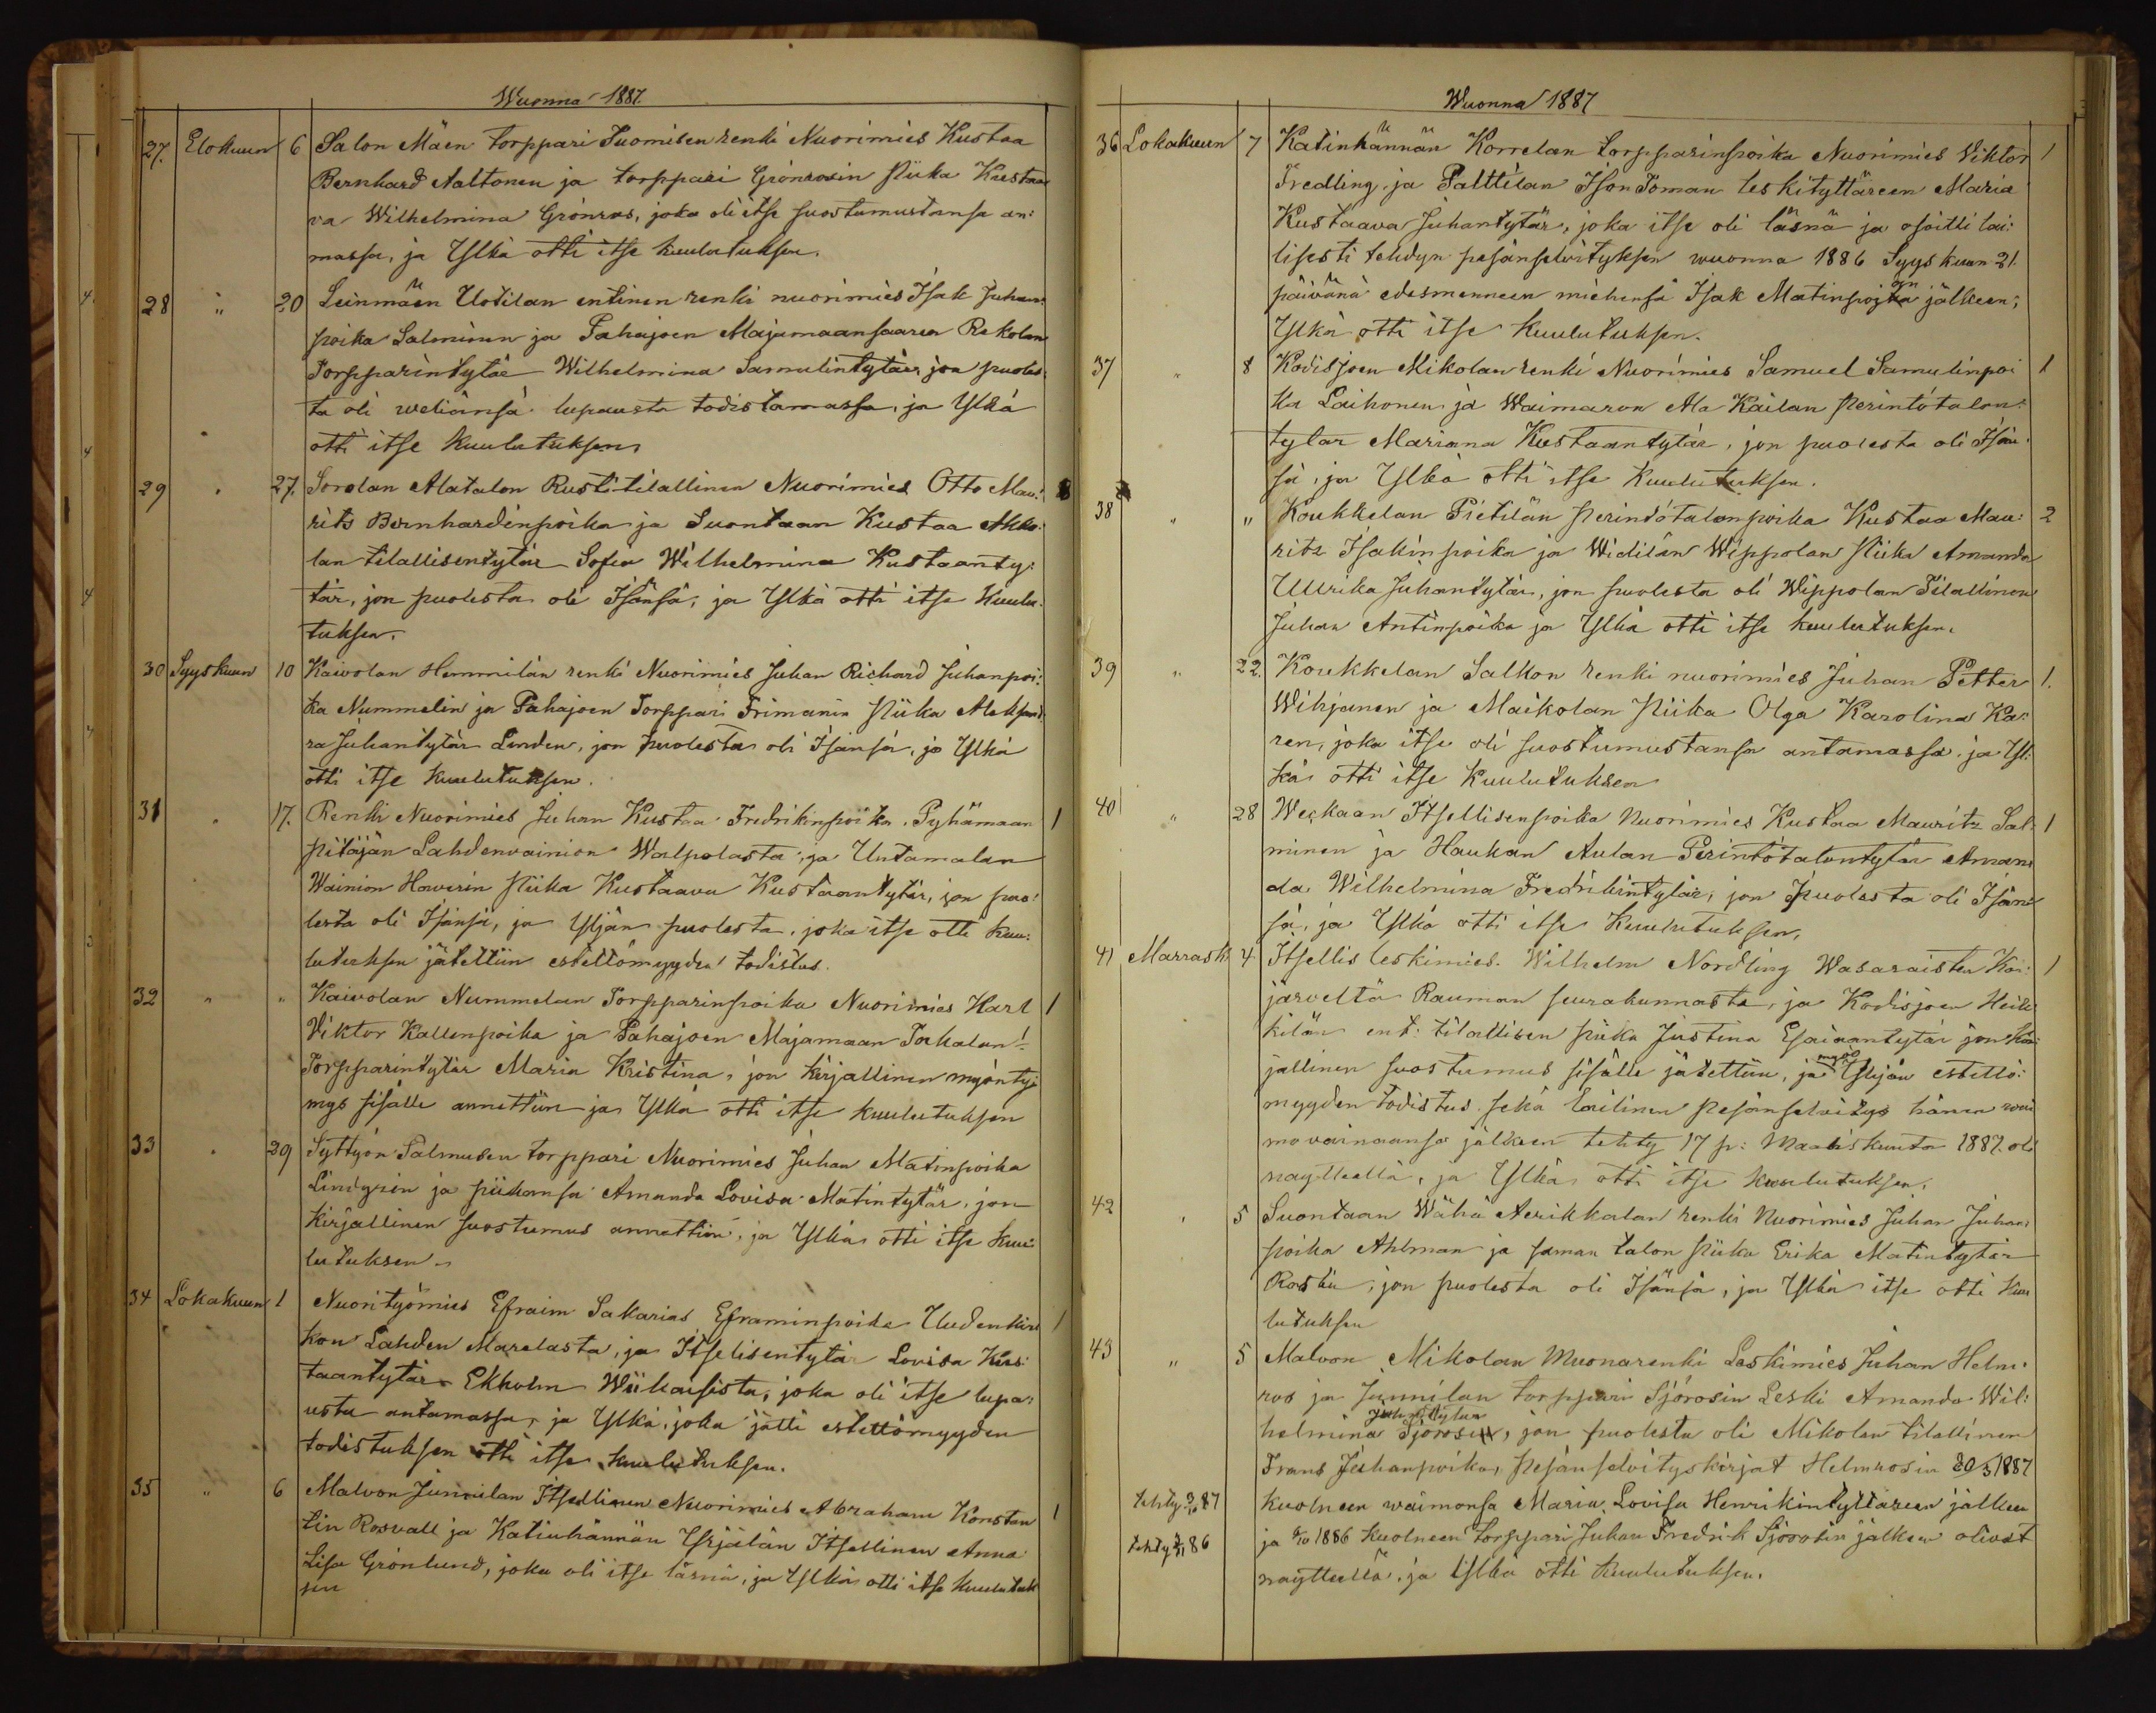 Wuonna 1887.
27. Elokuun 6 Salon Mäen torppari Suomisen renki Nuorimies Kustaa
Bernhard Aaltonen ja torppari Grönrosin Piika Kustaa
va Wilhelmina Grönros, joka oli itse suostumustansa an:
massa, ja Ylkä otti itse kuulutuksen.
28 " 20 Leinmäen Uotilan entinen renki nuorimies Isak Juhan
poika Salominen ja Pahajoen Majamaansaaren Rekolan
Torpparintytär Wilhelmina Samulintytär, jon puoles:
ta oli weliänsä lupausta todistamassa, ja Ylkä
otti itse kuulutuksen
29 " 27. Sorolan Alatalon Rustitilallinen Nuorimies Otto Mau:
rits Bernhardinpoika ja Suontaan Kustaa Akko:
lan tilallisentytär Sofia Wilhelmina Kustaanty:
tär, jon puolesta oli Isänsä, ja Ylkä otti itse Kuulu:
tuksen.
30 Syyskuun 10 Kaivolan Hemmilän renki Nuorimies Juhan Richard Juhanpoi:
ka Nummelin ja Pahajoen Torppari Frimanin Piika Aleksand
ra Juhantytär Linden, jon puolesta oli Isänsä, ja Ylkä
otti itse Kuulutuksen.
31 " 17. Renki Nuorimies Juhan Kustaa Fredrikinpoika Pyhämaan 1
pitäjän Lahdenvainion Walpolasta, ja Untamalan
Wainion Haverin Piika Kustaava Kustaantytär, jon puo:
lesta oli Isänsä, ja Yljän puolesta, joka itse otti kuu:
lutuksen jätettiin estettömyyden todistus.
32 " " Kaivolan Nummelan Torpparinpoika Nuorimies Karl 1
Viktor Kallenpoika ja Pahajoen Majamaan Torkalan
Torpparintytär Maria Kristina, jon kirjallinen myönty
mys sisälle annettiin ja Ylkä otti itse kuulutuksen
33 " 29 Syttyön Salmusen torppari Nuorimies Juhan Matinpoika
Lindgrén ja piikansa Amanda Lovisa Matintytär, jon
Kirjallinen suostumus annettiin, ja Ylkä otti itse kuu:
lutuksen.
34 Lokakuun 1 Nuorityömies Efraim Sakarias Eframinpoika Uudenkir 1
kon Lahden Marolasta, ja Itselisentytär Lovisa Kus:
taantytär Ekholm Wiikaisista, joka oli itse lupa:
usta antamassa, ja Ylkä, joka jätti estettömyyden
todistuksen otti itse kuulutuksen.
35 " 6 Malvon Junnilan Itsellinen Nuorimies Abraham Konstan 1
tin Rosvall ja Katinhännän Yrjälän Itsellinen Anna
Lisa Grönlund, joka oli itse läsnä, ja Ylkä otti itse kuulutuk
sen
Wuonna 1887
36 Lokakuun 7 Katinhännän Korrelan torpparinpoika Nuorimies Viktor 1
Fredling ja Palttilan Ison Toman leskityttäreen Maria
Kustaava Juhantytär, joka itse oli läsnä ja osoitti lai:
lisesti tehdyn pesänselvityksen wuonna 1886 Syyskuun 21.
päivänä edesmenneen miehensä Isak Matinpojan jälkeen;
Ylkä otti itse kuulutuksen.
37 " 8 Kodisjoen Mikolan renki Nuorimies Samuel Samulinpoi 1
ka Laihonen ja Waimaron Ala Käilan Perintötalon:
tytär Mariana Kustaantytär, jon puolesta oli Isän:
sä, ja Ylkä otti itse kuulutuksen.
38 " " Koukkelan Pietilän Perintötalonpoika Kustaa Mau: 2
ritz Isakinpoika ja Widilän Wippolan Piika Amanda
Ullrika Juhantytär, jon puolesta oli Wippolan Tilallinen
Juhan Antinpoika ja Ylkä otti itse kuulutuksen.
39 " 22. Koukkelan Salkon renki nuorimies Juhan Petter 1.
Wihjanen ja Maikolan Piika Olga Karolina Ka:
ren, joka itse oli suostumustansa antamassa, ja Yl:
kä otti itse kuulutuksen
40 " 28 Weckaan Itsellisenpoika Nuorimies Kustaa Mauritz Sal: 1
minen ja Haukan Aulan Perintötalontytär Aman:
da Wilhelmina Fredrikintytär, jon puolesta oli Isän:
sä, ja Ylkä otti itse kuulutuksen,
41 Marrask. 4. Itsellis leskimies Wilhelm Nordling Wasaraisten Koi: 1
järveltä Rauman seurakunnasta, ja Kodisjoen Heik
kilän ent. tilallisen piika Justina Esaiaantytär jon Kir
jallinen suostumus sisälle jätettiin, ja myös Yljän estettö:
myyden todistus sekä laillinen pesänselvitys hänen wai
mo vainaansa jälkeen tehty 17 p: Maaliskuuta 1887 oli
näytteellä, ja Ylkä otti itse kuulutuksen.
42 " 5 Suontaan Wähä Aerikkalan renki Nuorimies Juhan Juhan:
poika Ahlman ja saman talon Piika Erika Matintytär
Rostu, jon puolesta oli Isänsä, ja Ylkä itse otti kuu
lutuksen
43 " 5 Malvon Mikolan Muonarenki Leskimies Juhan Helm:
ros ja Junnilan torppari Sjörosin Leski Amanda Wil:
helmina Juhantytär Sjöros, jon puolesta oli Mikolan tilallinen
Frans Juhanpoika, Pesänselvityskirjat Helmrosin 20/3 1887
kuolneen waimonsa Maria Lovisa Henrikintyttäreen jälkeen
ja 1886 kuolneen torppari Juhan Fredrik Sjörosin jälkeen olivat
näytteellä, ja Ylkä otti kuulutuksen.